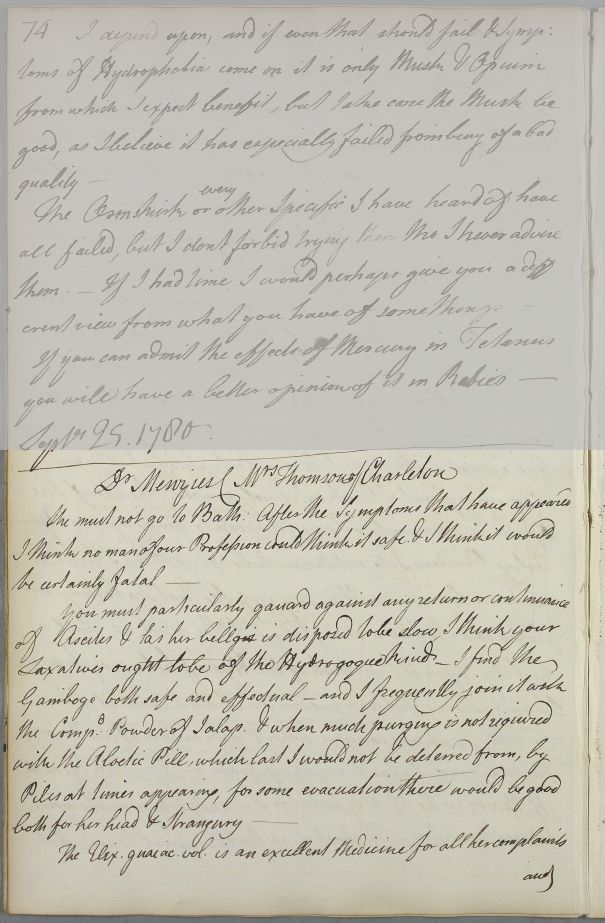 74 I depend upon, and if even that should fail & Symp:
toms of Hydrophobia come on it is only Musk & Opium
from which I expect benefit, but take care the Musk be
good, as I believe it has especially failed from being of a bad
quality —
every
The Ormskirk or other Specific I have heard of have
all failed, but I dont forbid trying them tho I never advise
them. — If I had time I would perhaps give you a diff
erent view from what you have of some things —
If you can admit the effects of Mercury in Tetanus
you will have a better opinion of it in Rabies —
Septr 25. 1780.
Dr Menzies ( Mrs Thomson of Charleton
She must not go to Bath. After the Symptoms that have appeared
I think no man of our Profession could think it safe. & I think it would
be certainly fatal —
You must particularly gauard against any return or continuance
of Ascites & as her belly is disposed to be slow, I think your
Laxatives ought to be of the Hydrogogue kind — I find the
Gamboge both safe and effectual — and I frequently join it with
the Comp.d Powder of Jalap. & when much purging is not required
with the Aloetic Pill, which last I would not be deterred from, by
Piles at times appearing, for some evacuation there would be good
both for her head & Strangury —
The Elix. guaiac. vol. is an excellent Medicine for all her complaints
and